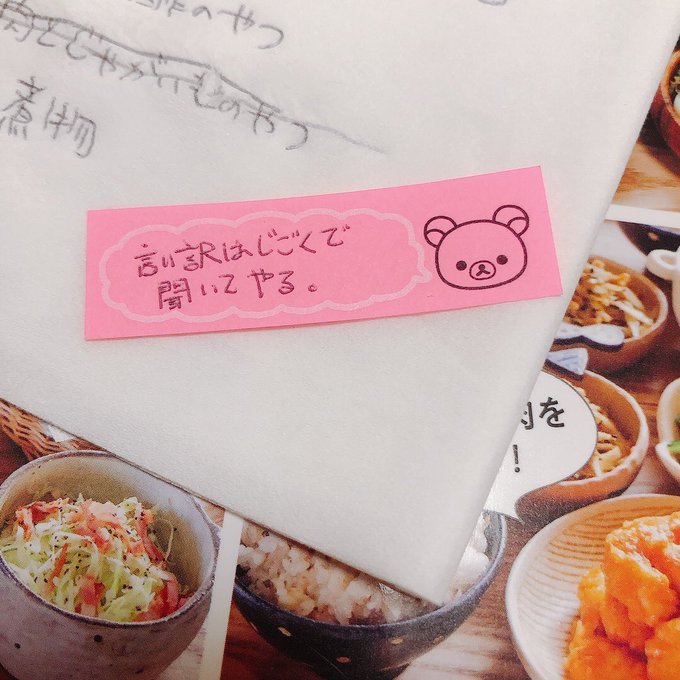 のやつ
じゃがいものやつ
煮物
言い訳はじごくで
聞いてやる。
肉を
！